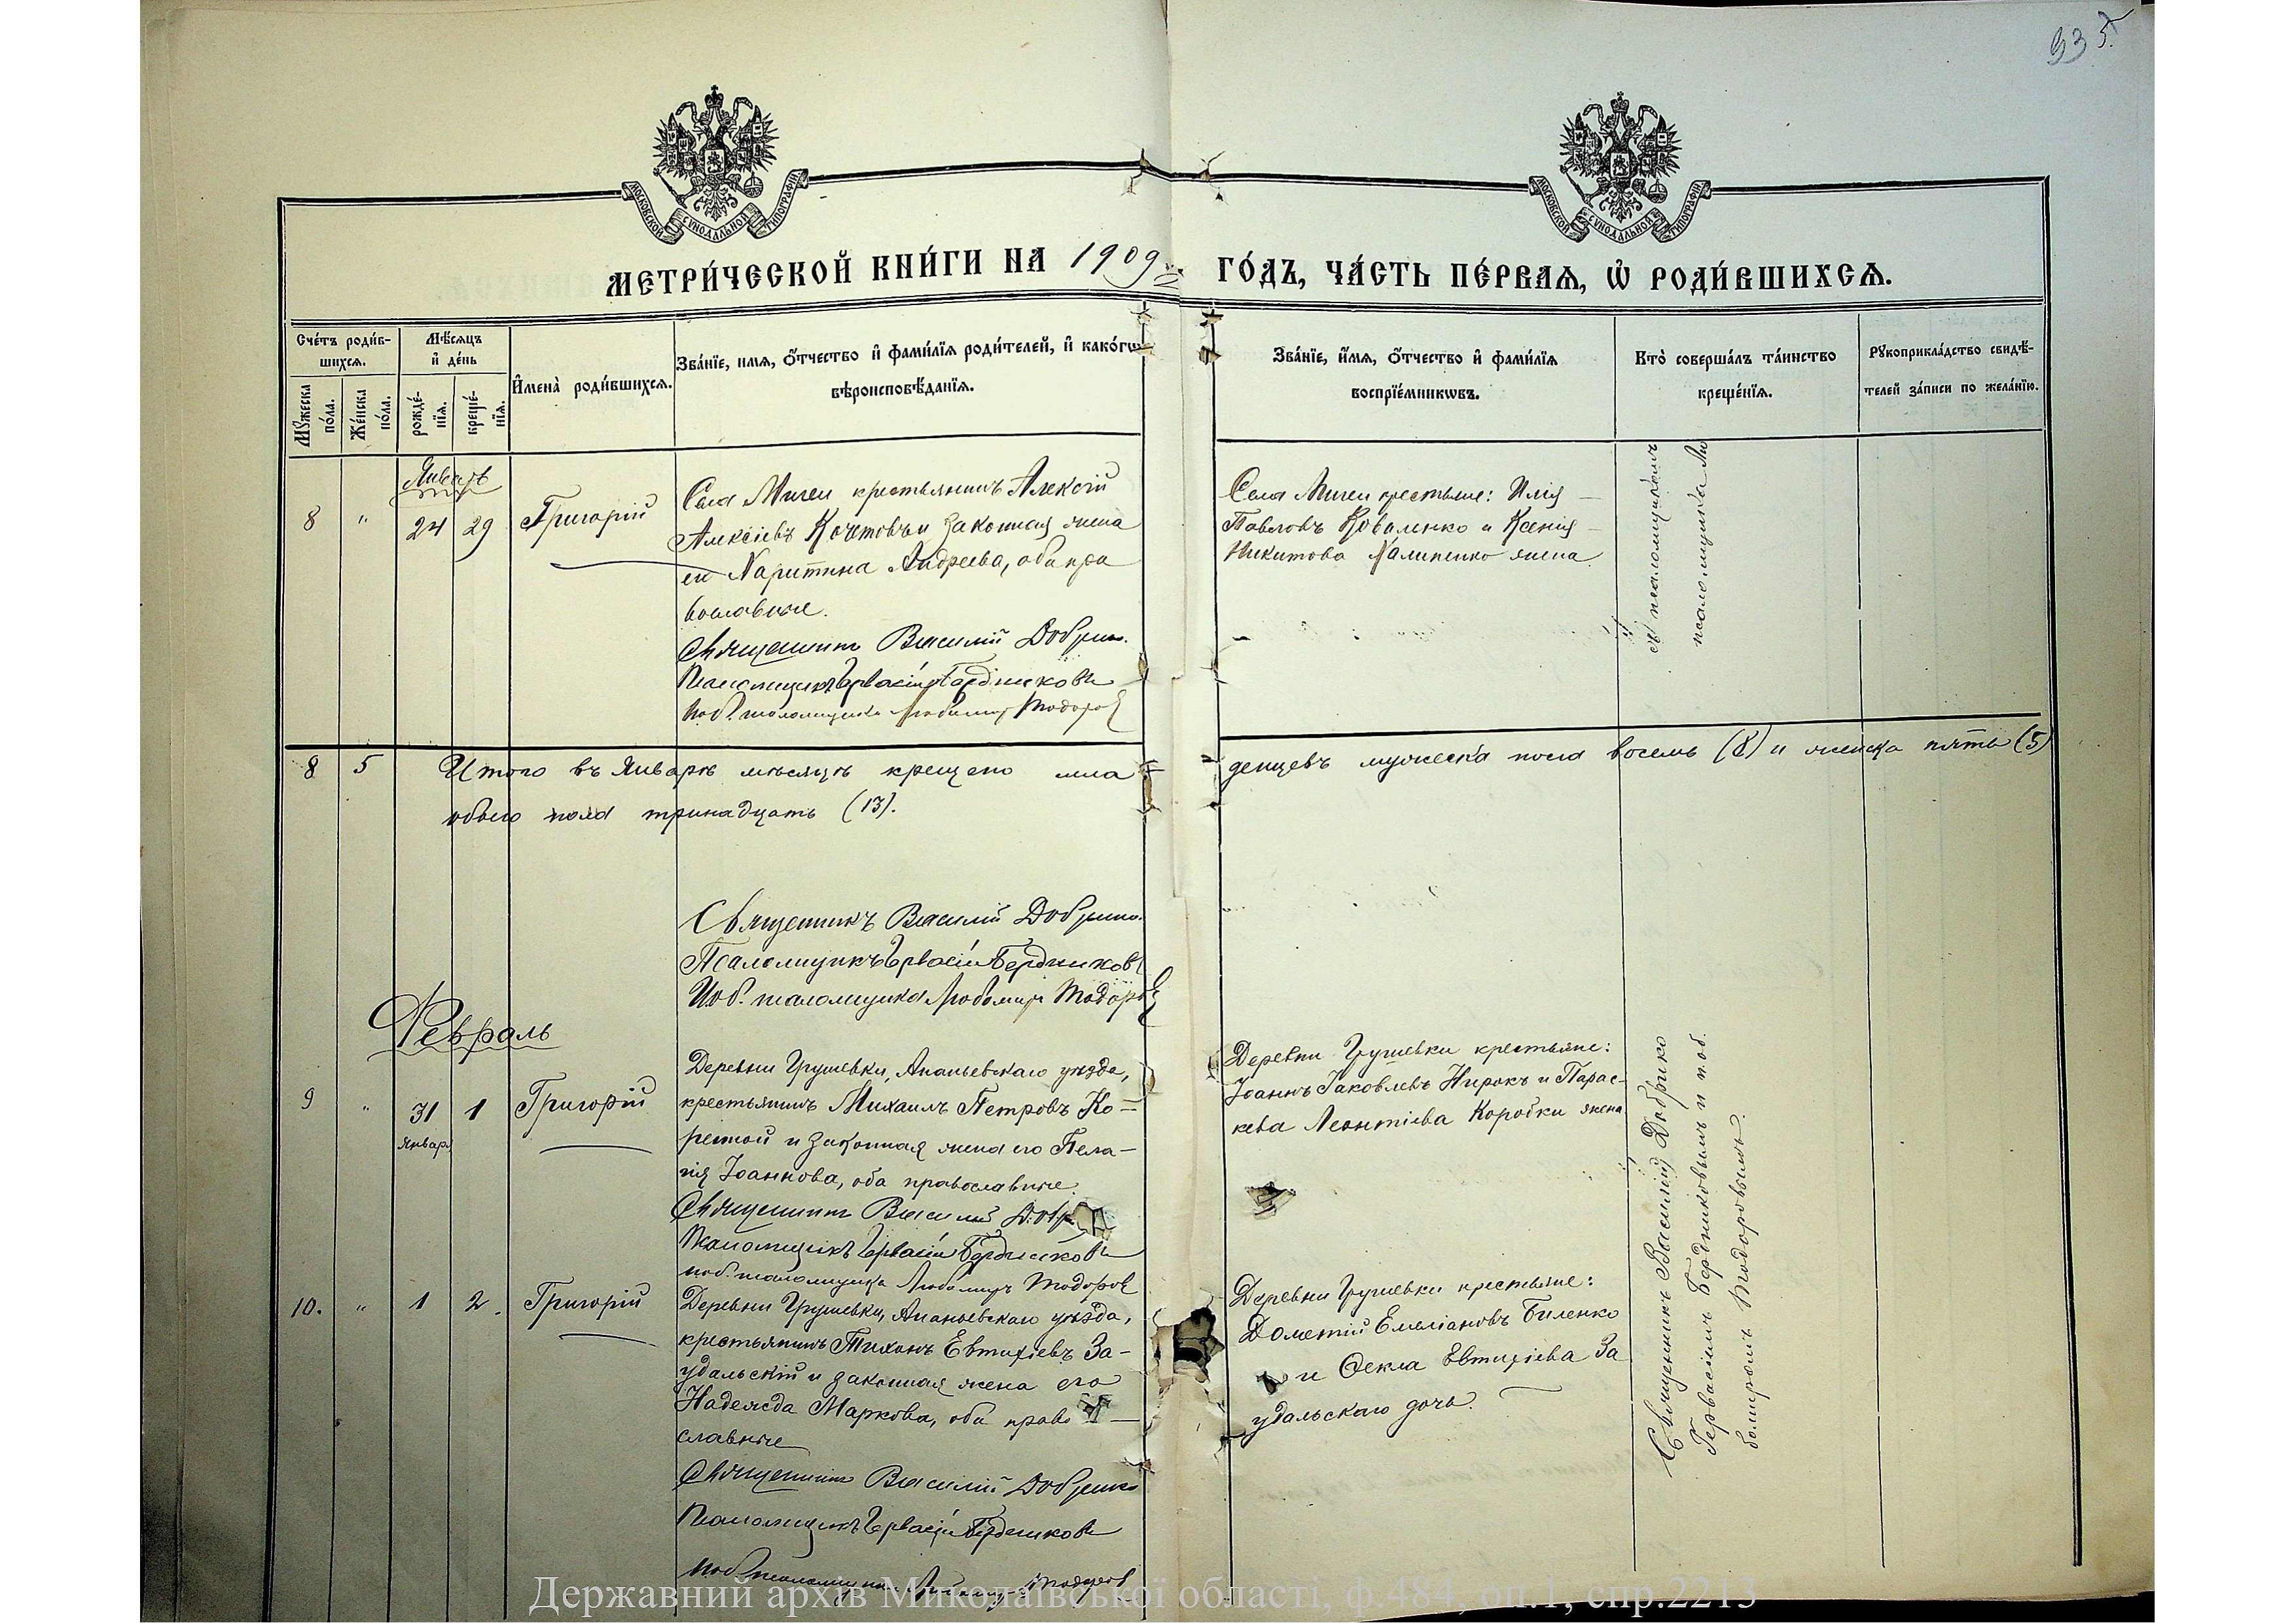 935
МОСКОВСКОЙ СѴНОДАЛЬНОЙ ТИПОГРАФІИ
МОСКОВСКОЙ СѴНОДАЛЬНОЙ ТИПОГРАФІИ
МЕТРИ́ЧЕСКОЙ КНИ́ГИ НА 1909 ГО́ДЪ, ЧА́СТЬ ПЕ́РВАѦ, Ѡ҆ РОДИ́ВШИХСѦ.
Сче́тъ роди́в-
шихсѧ.
Мꙋ́жеска
по́ла.
Же́нска
по́ла.
Мѣ́сѧцъ
и҆ де́нь
рожде́-
нїѧ.
креще́-
нїѧ.
И҆мена̀ роди́вшихсѧ.
Зва́нїе, и҆мѧ, ѻ҆́тчество и҆ фами́лїѧ роди́телей, и҆ како́гѡ
вѣроисповѣ́данїѧ.
Зва́нїе, и҆́мѧ, ѻ҆́тчество и҆ фами́лїѧ
воспрїе́мникѡвъ.
Кто̀ соверша́лъ та́инство
креще́нїѧ.
Рꙋкоприкла́дство свидѣ́-
телей за́писи по жела́нїю.
Январь
8 " 24 29 Григорій
Села Мигеи крестьянинъ Алексій
Алексіевъ и законная жена
его Харитина Андреева, оба пра
вославные.
Священникъ Василій Добрико.
Псаломщикъ Гервасій Бердниковъ
Иоб. псаломщика Любомиръ Тодоровъ
Села Мигеи крестьяне: Илія
Павловъ Коваленко и Ксенія
Никитова Калиненко жена
съ псаломщикомъ
псаломщика Лю
8 5 Итого въ Январѣ мѣсяцѣ крещено мла
денцевъ мужеска пола восемь (8) и женска пять (5)
обоего пола тринадцать (13).
Священникъ Василій Добрико.
Псаломщикъ Гервасій Бердниковъ
Иоб. псаломщика Любомиръ Тодоровъ
Февраль
9 " 31 1 Григорій
Январ.
Деревни Грушевки, Ананьевскаго уѣзда,
крестьянинъ Михаилъ Петровъ Ко-
рестой и законная жена его Пела-
гія Іоаннова, оба православные.
Священникъ Василій
Псаломщикъ Гервасій Бердниковъ
иоб. псаломщика Любомиръ Тодоровъ
Деревни Грушевки крестьяне:
Іоаннъ Іаковлевъ Нирокъ и Парас-
кева Леонтіева Коробки жена
10. " 1 2. Григорій
Деревни Грушевки, Ананьевскаго уѣзда,
крестьянинъ Тихонъ Евтихіевъ За-
удальскій и законная жена его
Надежда Маркова, оба право-
славные
Священникъ Василій Добрико
Псаломщикъ Гервасій Бердниковъ
иоб. псаломщика Любомиръ Тодоровъ
Деревни Грушевки крестьяне:
Дометій Емеліановъ Биленко
и Ѳекла Евтихіева За
удальскаго дочь.
Священникъ Василій Добрико
Гервасіемъ Бердниковымъ и и об.
бомиромъ Тодоровымъ.
Державний архів Миколаївської області, ф.484, оп.1, спр.2213